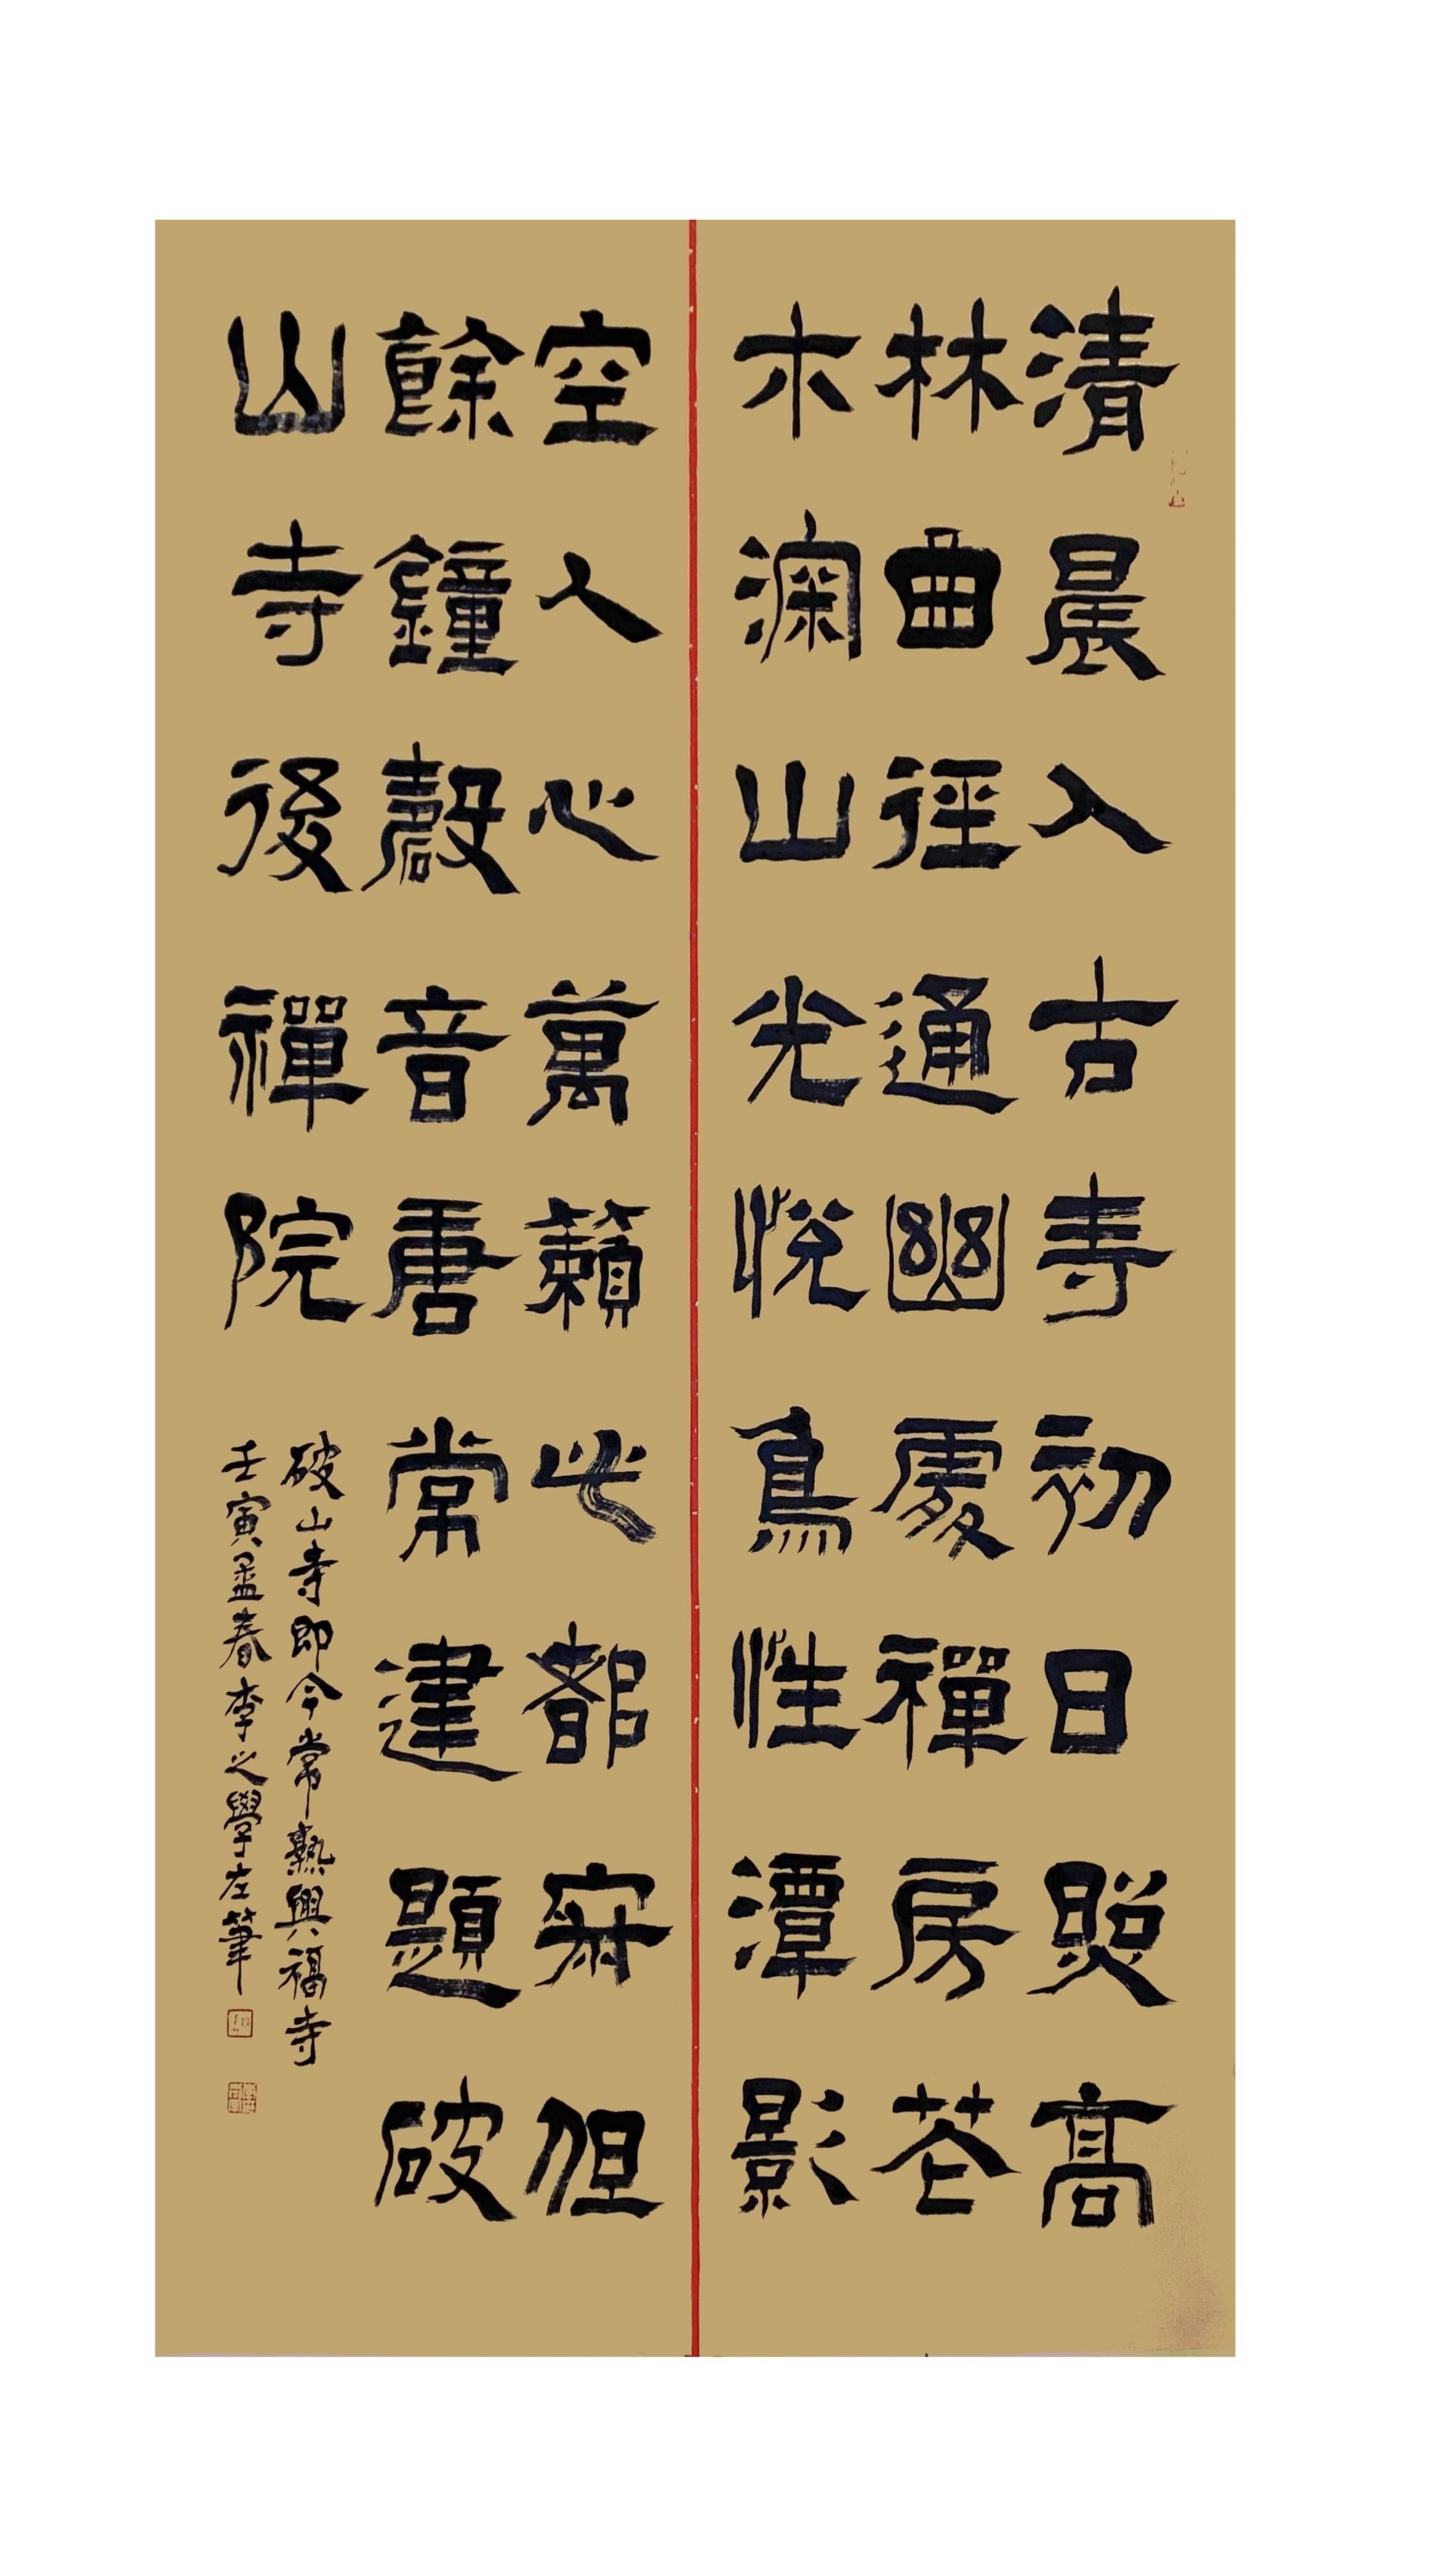 清晨入古寺初日照高
林曲徑通幽處禪房花
木深山光悅鳥性潭影
空人心萬籟此都寂但
餘鐘磬音唐常建題破
山寺後禪院
破山寺即今常熟興福寺
壬寅孟春李之學左筆